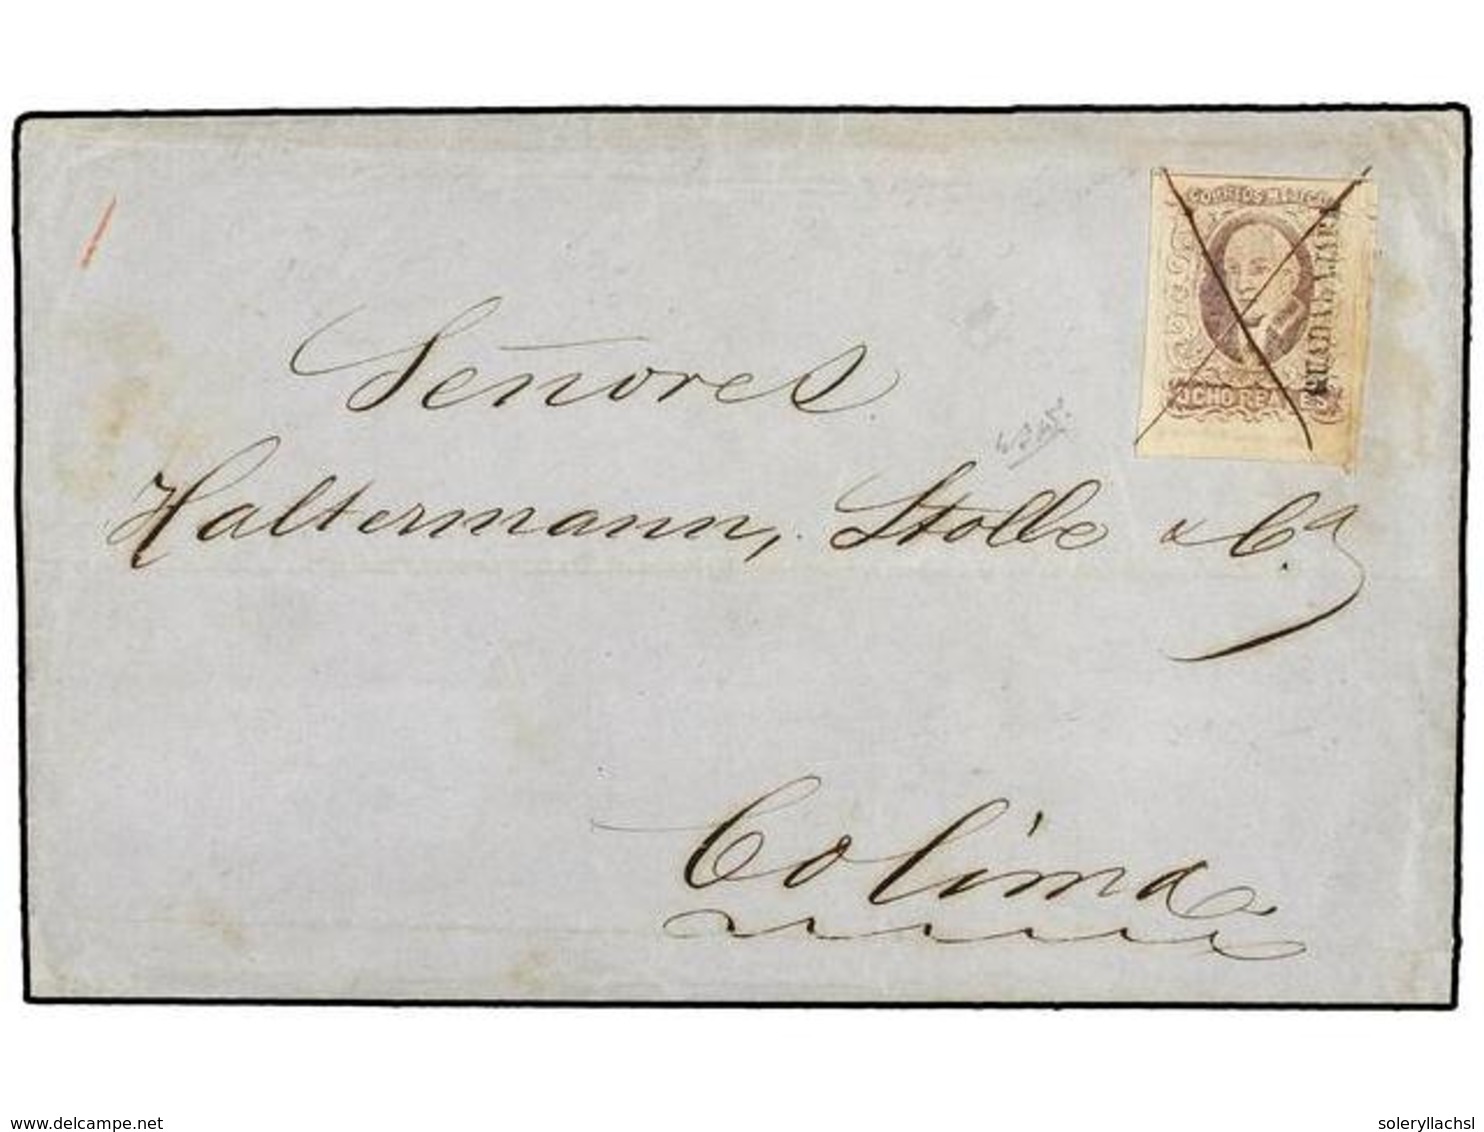 CORREOS MEJICO
GUADALAJARA
OCHO REA
Señores
Haltermann, Stolle & Cª
Colima
delcampe.net
soleryllachsl